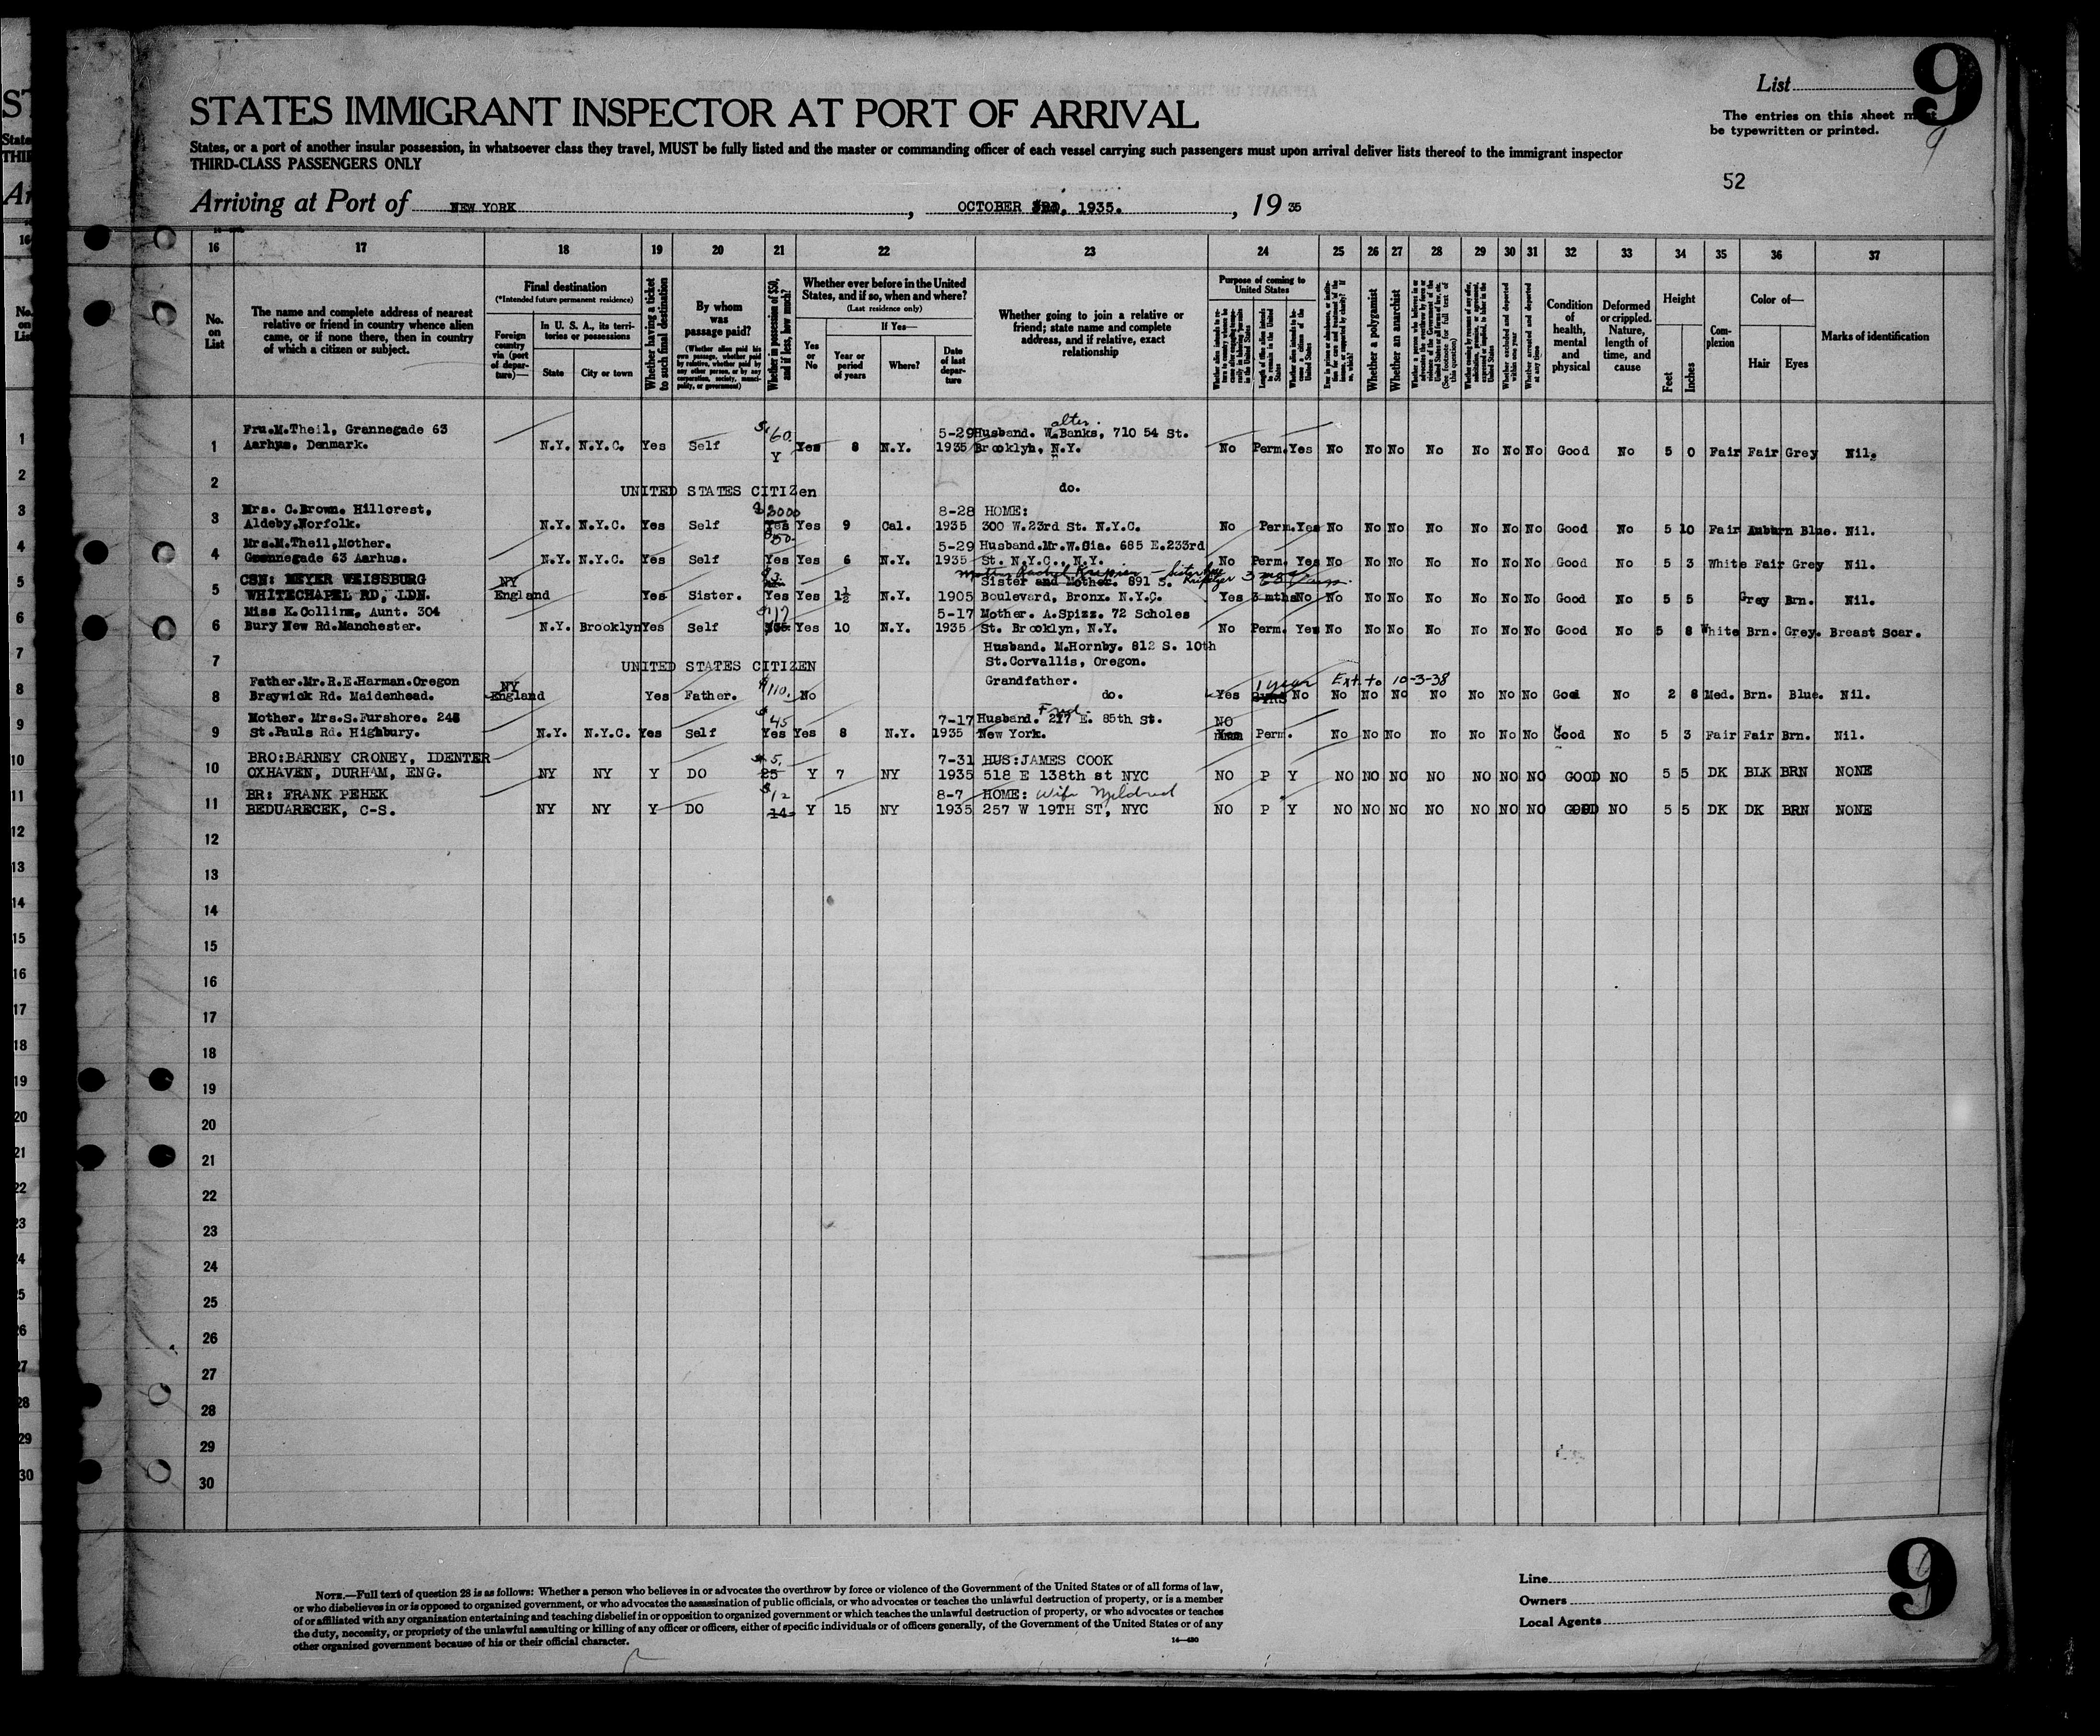 List 9
STATES IMMIGRANT INSPECTOR AT PORT OF ARRIVAL
The entries on this sheet must
be typewritten or printed.
States, or a port of another insular possession, in whatsoever class they travel, MUST be fully listed and the master or commanding officer of each vessel carrying such passengers must upon arrival deliver lists thereof to the immigrant inspector
THIRD-CLASS PASSENGERS ONLY
52
Arriving at Port of NEW YORK, OCTOBER 3RD, 1935., 19 35
16 17 18 19 20 21 22 23 24 25 26 27 28 29 30 31 32 33 34 35 36 37
No. on List
The name and complete address of nearest relative or friend in country whence alien came, or if none there, then in country of which a citizen or subject.
Final destination
(*Intended future permanent residence)
Foreign country via (port of departure)—
In U. S. A., its territories or possessions
State
City or town
Whether having a ticket to such final destination
By whom was passage paid?
(Whether alien paid his own passage, whether paid by relative, whether paid by any other person, or by any corporation, society, municipality, or government)
Whether in possession of $50, and if less, how much?
Whether ever before in the United States, and if so, when and where?
(Last residence only)
Yes or No
If Yes—
Year or period of years
Where?
Date of last departure
Whether going to join a relative or friend; state name and complete address, and if relative, exact relationship
Purpose of coming to United States
Whether a polygamist
Whether an anarchist
Condition of health, mental and physical
Deformed or crippled. Nature, length of time, and cause
Height
Feet
Inches
Complexion
Color of—
Hair
Eyes
Marks of identification
Fru.M.Theil, Grannegade 63 5-29 Husband. Walter Banks, 710 54 St.
1 Aarhus, Denmark. N.Y. N.Y.C. Yes Self $160. Yes 8 N.Y. 1935 Brooklyn, N.Y. No Perm. Yes No No No No No No No Good No 5 0 Fair Fair Grey Nil.
2 UNITED STATES CITIZen do.
Mrs. C.Brown. Hillcrest, $3000 8-28 HOME:
3 Aldeby.Norfolk. N.Y. N.Y.C. Yes Self Yes Yes 9 Cal. 1935 300 W.23rd St. N.Y.C. No Perm. Yes No No No No No No No Good No 5 10 Fair Auburn Blue. Nil.
Mrs.M.Theil,Mother. $50. 5-29 Husband.Mr.W.Gia. 685 E.233rd
4 Grennegade 63 Aarhus. N.Y. N.Y.C. Yes Self Yes Yes 6 N.Y. 1935 St. N.Y.C., N.Y. No Perm. Yes No No No No No No No Good No 5 3 White Fair Grey Nil.
CSN: MEYER WEISSBURG NY Sister and Mother. 891 S. 3 mos
5 WHITECHAPEL RD, LDN. England Yes Sister. Yes Yes 1½ N.Y. 1905 Boulevard, Bronx. N.Y.C. Yes 3 mths No No No No No No No No Good No 5 5 Grey Brn. Nil.
Miss K.Collins, Aunt. 304 $117 5-17 Mother. A.Spizz. 72 Scholes
6 Bury New Rd.Manchester. N.Y. Brooklyn Yes Self Yes Yes 10 N.Y. 1935 St. Brooklyn, N.Y. No Perm. Yes No No No No No No No Good No 5 8 White Brn. Grey. Breast Scar.
Husband. M.Hornby. 812 S. 10th
7 UNITED STATES CITIZEN St.Corvallis, Oregon.
Father.Mr.R.E.Harman.Oregon NY Grandfather. 1 year Ext. to 10-3-38
8 Braywick Rd. Maidenhead. England Yes Father. $110. No do. Yes 2YRS No No No No No No No No Good No 2 8 Med. Brn. Blue. Nil.
Mother. Mrs.S.Furshore. 245 $45 7-17 Husband. Fred. 217 E. 85th St. NO
9 St.Pauls Rd. Highbury. N.Y. N.Y.C. Yes Self Yes Yes 8 N.Y. 1935 New York. Yes Perm. No No No No No No No Good No 5 3 Fair Fair Brn. Nil.
BRO:BARNEY CRONEY, IDENTER $5. 7-31 HUS:JAMES COOK
10 OXHAVEN, DURHAM, ENG. NY NY Y DO 25 Y 7 NY 1935 518 E 138th st NYC NO P Y NO NO NO NO NO NO NO GOOD NO 5 5 DK BLK BRN NONE
BR: FRANK PEHEK $12 8-7 HOME: Wife Mildred
11 BEDUARECEK, C-S. NY NY Y DO 14 Y 15 NY 1935 257 W 19TH ST, NYC NO P Y NO NO NO NO NO NO NO GOOD NO 5 5 DK DK BRN NONE
12
13
14
15
16
17
18
19
20
21
22
23
24
25
26
27
28
29
30
NOTE.—Full text of question 28 is as follows: Whether a person who believes in or advocates the overthrow by force or violence of the Government of the United States or of all forms of law,
or who disbelieves in or is opposed to organized government, or who advocates the assassination of public officials, or who advocates or teaches the unlawful destruction of property, or is a member
of or affiliated with any organization entertaining and teaching disbelief in or opposition to organized government or which teaches the unlawful destruction of property, or who advocates or teaches
the duty, necessity, or propriety of the unlawful assaulting or killing of any officer or officers, either of specific individuals or of officers generally, of the Government of the United States or of any
other organized government because of his or their official character.
14—430
Line
Owners
Local Agents
9